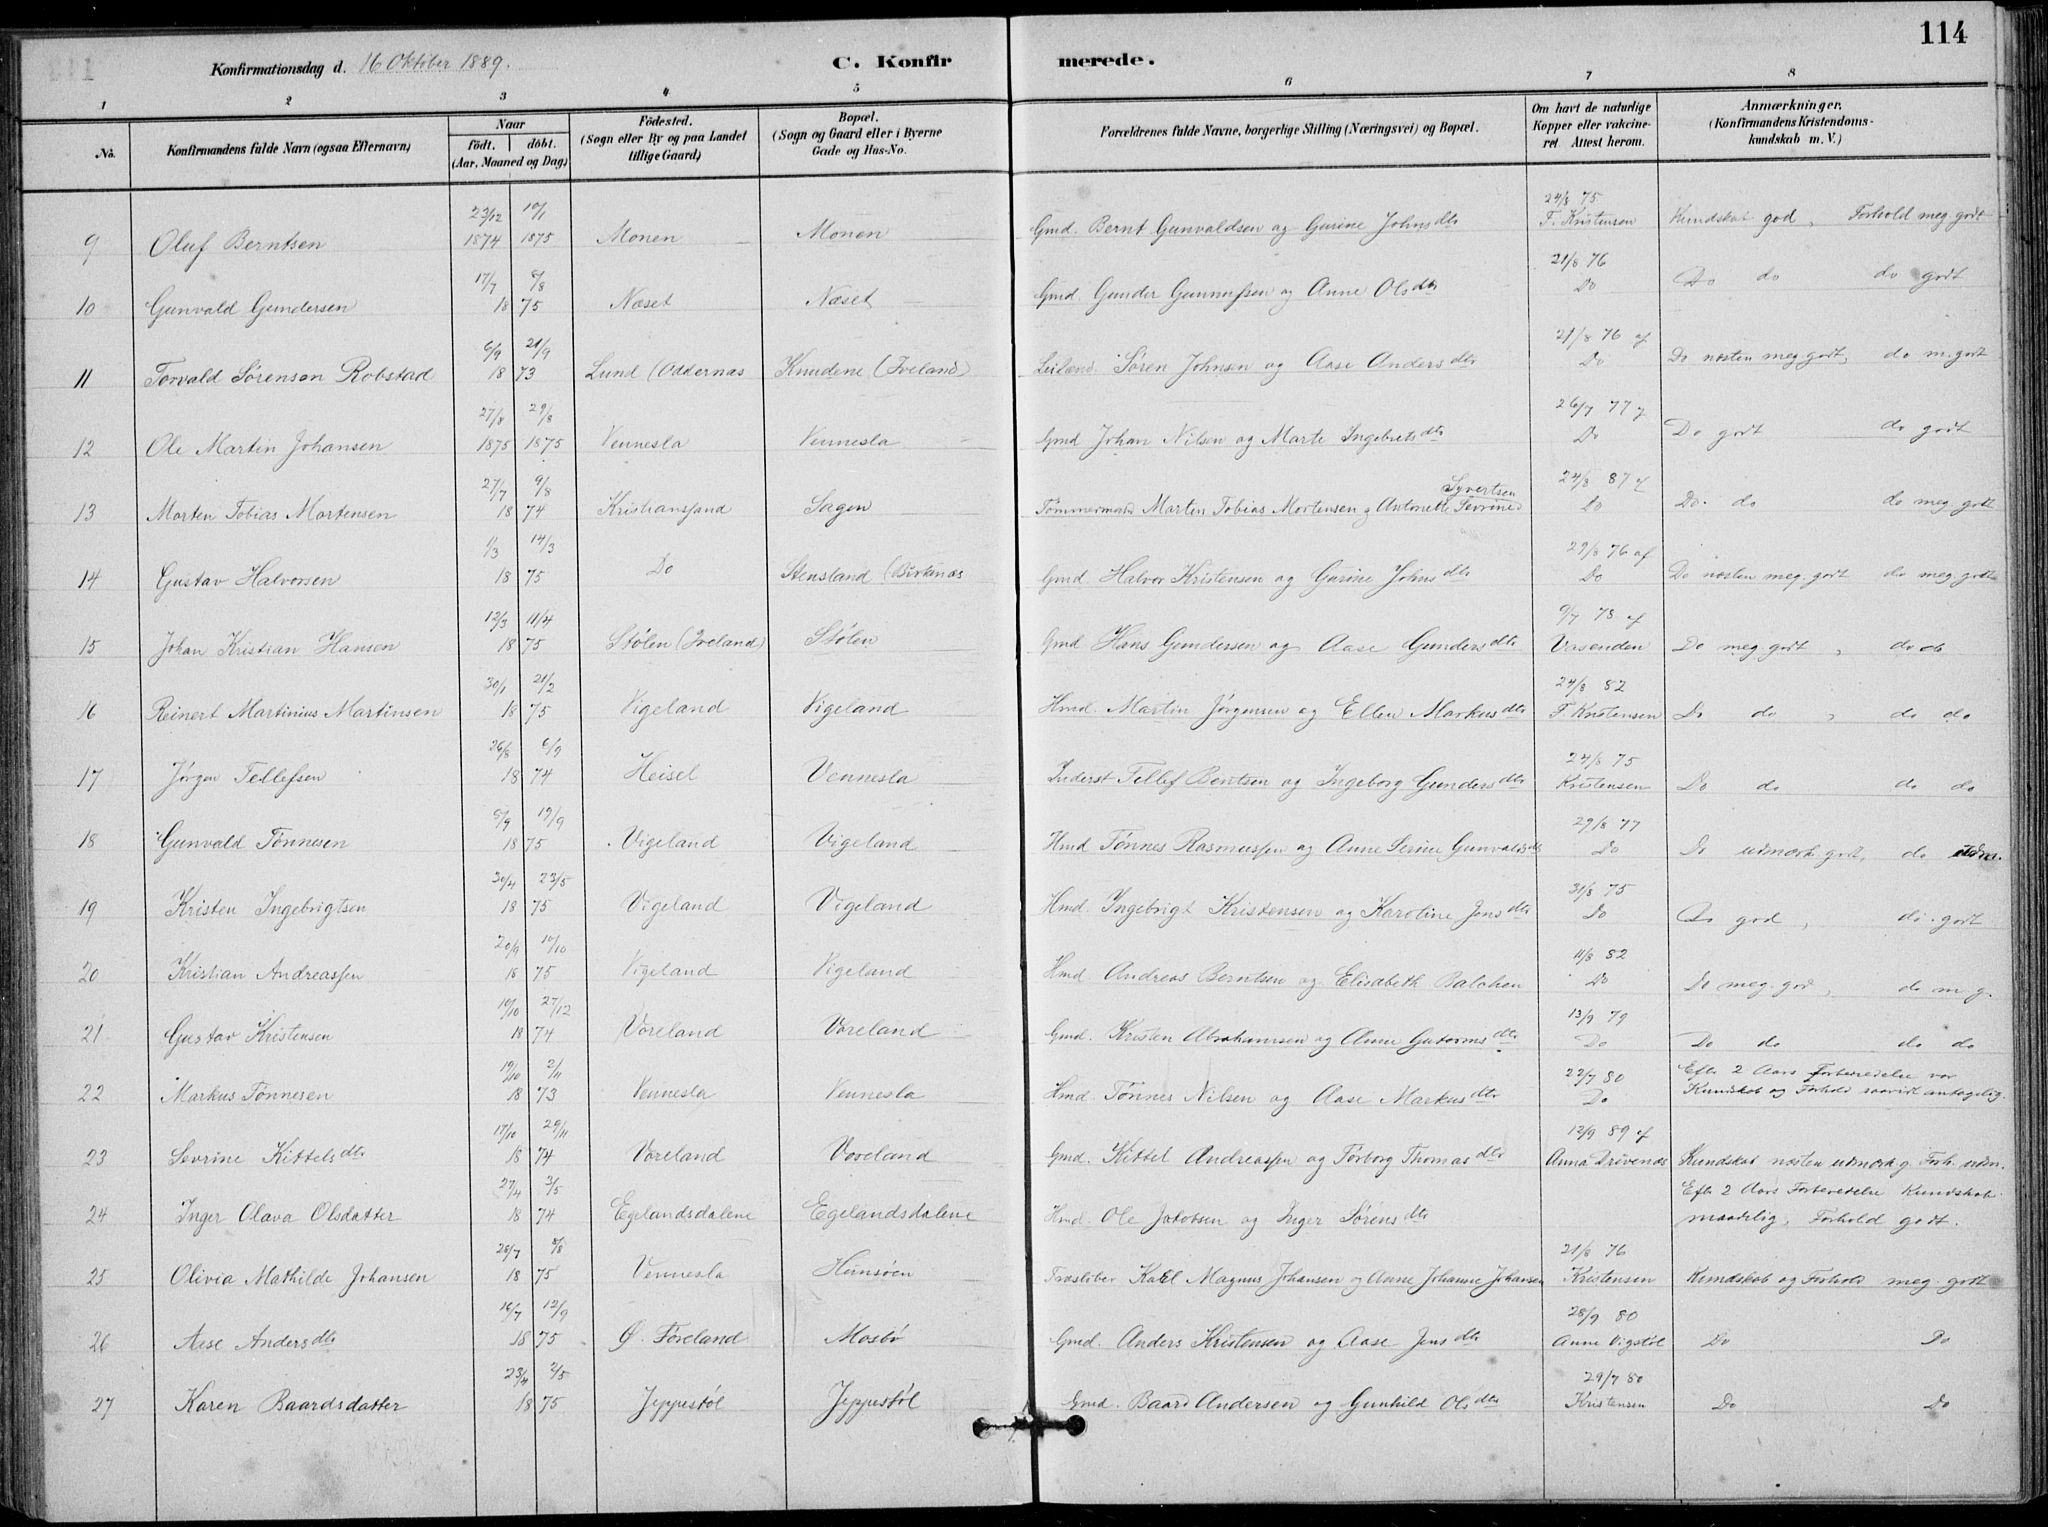 114
Konfirmationsdag d. 16 Oktober 1889. C. Konfirmerede.
1 2 3 4 5 6 7 8
No. Konfirmandens fulde Navn (ogsaa Efternavn) Naar födt. döbt. (Aar, Maaned og Dag) Födested. (Sogn eller By og paa Landet tillige Gaard) Bopæl. (Sogn og Gaard eller i Byerne Gade og Hus-No. Forældrenes fulde Navne, borgerlige Stilling (Næringsvei) og Bopæl. Om havt de naturlige Kopper eller vakcineret Attest herom. Anmærkninger. (Konfirmandens Kristendomskundskab m. V.)
9 Oluf Berntsen 23/12 1874 10/1 1875 Monen Monen Gmd. Bernt Gunvaldsen og Gurine Johnsdtr 24/8 75 F. Kristensen Kundskab god, Forhold meg godt
10 Gunvald Gundersen 17/7 8/8 1875 Næset Næset Gmd. Gunder Gunnufsen og Anne Olsdtr 21/8 76 Do Do do do godt
11 Torvald Sørensen Robstad 6/9 21/9 1873 Lund (Oddernæs Knudene (Iveland) Leilænd. Søren Johnsen og Aase Andersdtr 21/8 76 af Do Do næsten meg godt, do m. godt
12 Ole Martin Johansen 27/8 1875 29/8 1875 Vennesla Vennesla Gmd Johan Nilsen og Marte Ingebretsdtr 26/7 77 Do Do godt do godt
13 Morten Tobias Mortensen 27/7 9/8 1874 Kristianssand Sagen Tømmermand Morten Tobias Mortensen og Antonette Sevrine Syvertsen 24/8 87 Do Do. do do meg godt
14 Gustav Halvorsen 1/3 14/3 1875 Do Stensland (Birkenæs Gmd. Halvor Kristensen og Gurine Johnsdtr 29/8 76 af Do Do næsten meg. godt do meg. godt
15 Johan Kristian Hansen 12/3 11/4 1875 Stølen (Iveland) Stølen Gmd Hans Gundersen og Aase Gundersdtr 9/7 78 af Vasenden Do meg godt, do do
16 Reinert Martinius Martinsen 30/1 21/2 1875 Vigeland Vigeland Hmd. Martin Jørgensen og Ellen Markusdtr 24/8 82 F. Kristensen Do do, do do
17 Jørgen Tellefsen 26/8 6/9 1874 Heisel Vennesla Inderst Tellef Bentsen og Ingeborg Gundersdtr 24/8 75 Kristensen Do do do do
18 Gunvald Tønnesen 5/9 19/9 1875 Vigeland Vigeland Hmd Tønnes Rasmussen og Anne Serine Gunvaldsdtr 29/8 77 Do Do udmærk. godt, do udm.
19 Kristen Ingebrigtsen 30/4 23/5 1875 Vigeland Vigeland Hmd. Ingebrigt Kristensen og Karoline Jensdtr 31/8 75 Do Do god, do. godt
20 Kristian Andreassen 20/9 10/10 1875 Vigeland Vigeland Hmd Andreas Berntsen og Elisabeth Balchen 11/8 82 Do Do meg. god, do m g.
21 Gustav Kristensen 19/10 27/12 1874 Voreland Voreland Gmd. Kristen Abrahamsen og Anne Gutormsdtr 13/9 79 Do Do do do do
22 Markus Tønnesen 19/10 2/11 1873 Vennesla Vennesla Hmd. Tønnes Nilsen og Aase Markusdtr 22/7 80 Do Efter 2 Aars Forberedelse var Kundskab og Forhold saavidt antagelig.
23 Sevrine Kittelsdtr 17/10 29/11 1874 Voreland Voreland Gmd. Kittel Andreassen og Torborg Thomasdtr 12/9 89 af Anna Drivenes Kundskab næsten udmærk g. Forh. udm.
24 Inger Olava Olsdatter 27/4 3/5 1874 Egelandsdalene Egelandsdalene Hmd. Ole Jakobsen og Inger Sørensdtr Efter 2 Aars Forberedelse Kundskab maadelig, Forhold godt.
25 Olivia Mathilde Johansen 26/7 8/8 1875 Vennesla Hunsøen Træsliber Karl Magnus Johansen og Anne Johanne Johansen 21/8 76 Kristensen Kundskab og Forhold meg. godt
26 Aase Andersdtr 16/7 12/9 1875 Ø. Føreland Mosbø Gmd. Anders Kristensen og Aase Jensdtr 28/9 80 Anne Vigstøl Do Do
27 Karen Baardsdatter 23/4 2/5 1875 Jeppestøl Jeppestøl Gmd. Baard Andersen og Gunhild Olsdtr 29/7 80 Kristensen Do Do